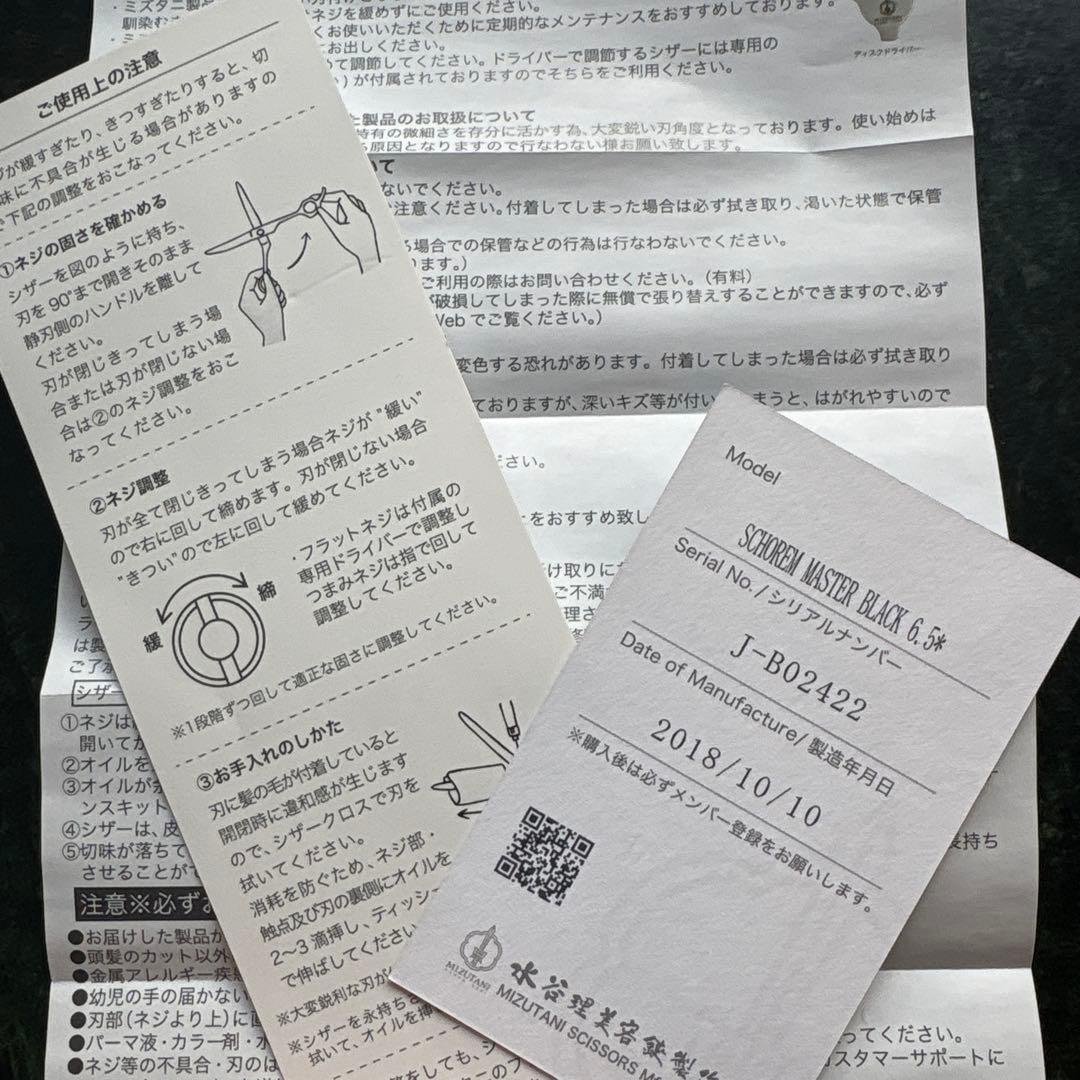 ・ミズタニ製品
ネジを緩めずにご使用ください。
馴染む
くお使いいただくために定期的なメンテナンスをおすすめしております。
にお出しください。
めて調節してください。ドライバーで調節するシザーには専用の
）が付属されておりますのでそちらをご利用ください。
ディスクドライバー
た製品のお取扱について
特有の微細さを存分に活かす為、大変鋭い刃角度となっております。使い始めは
る原因となりますので行なわない様お願い致します。
いて
ないでください。
注意ください。付着してしまった場合は必ず拭き取り、渇いた状態で保管
る場合での保管などの行為は行なわないでください。
ります。）
ご利用の際はお問い合わせください。（有料）
が破損してしまった際に無償で張り替えすることができますので、必ず
Webでご覧ください。）
変色する恐れがあります。付着してしまった場合は必ず拭き取り
ておりますが、深いキズ等が付いてしまうと、はがれやすいので
ださい。
をおすすめ致し
け取りに
ご不満
理さ
は製
ご了承
シザー
①ネジは
開いてか
②オイルを
③オイルが
ンスキット
④シザーは、皮
⑤切味が落ちて
させることがで
長持ち
注意※必ずお
●お届けした製品が
●頭髪のカット以外
●金属アレルギー疾患
●幼児の手の届かない
●刃部（ネジより上）に直
●パーマ液・カラー剤・水
●ネジ等の不具合・刃のは
ってください。
スタマーサポートに
ご使用上の注意
ジが緩すぎたり、きつすぎたりすると、切
味に不具合が生じる場合がありますの
で下記の調整をおこなってください。
①ネジの固さを確かめる
シザーを図のように持ち、
刃を90°まで開きそのまま
静刃側のハンドルを離して
ください。
刃が閉じきってしまう場
合または刃が閉じない場
合は②のネジ調整をおこ
なってください。
②ネジ調整
刃が全て閉じきってしまう場合ネジが“緩い”
ので右に回して締めます。刃が閉じない場合
“きつい”ので左に回して緩めてください。
・フラットネジは付属の
専用ドライバーで調整し
つまみネジは指で回して
調整してください。
緩
締
※1段階ずつ回して適正な固さに調整してください。
③お手入れのしかた
刃に髪の毛が付着していると
開閉時に違和感が生じます
ので、シザークロスで刃を
拭いてください。
消耗を防ぐため、ネジ部・
触点及び刃の裏側にオイルを
2〜3滴挿し、ティッシュ
で伸ばしてください
※大変鋭利な刃が
※シザーを永持ちさ
拭いて、オイルを挿
Model
SCHOREM MASTER BLACK 6.5*
Serial No./シリアルナンバー
J-B02422
Date of Manufacture/ 製造年月日
2018/10/10
※購入後は必ずメンバー登録をお願いします。
MIZUTANI
水谷理美容鋏製作
MIZUTANI SCISSORS M